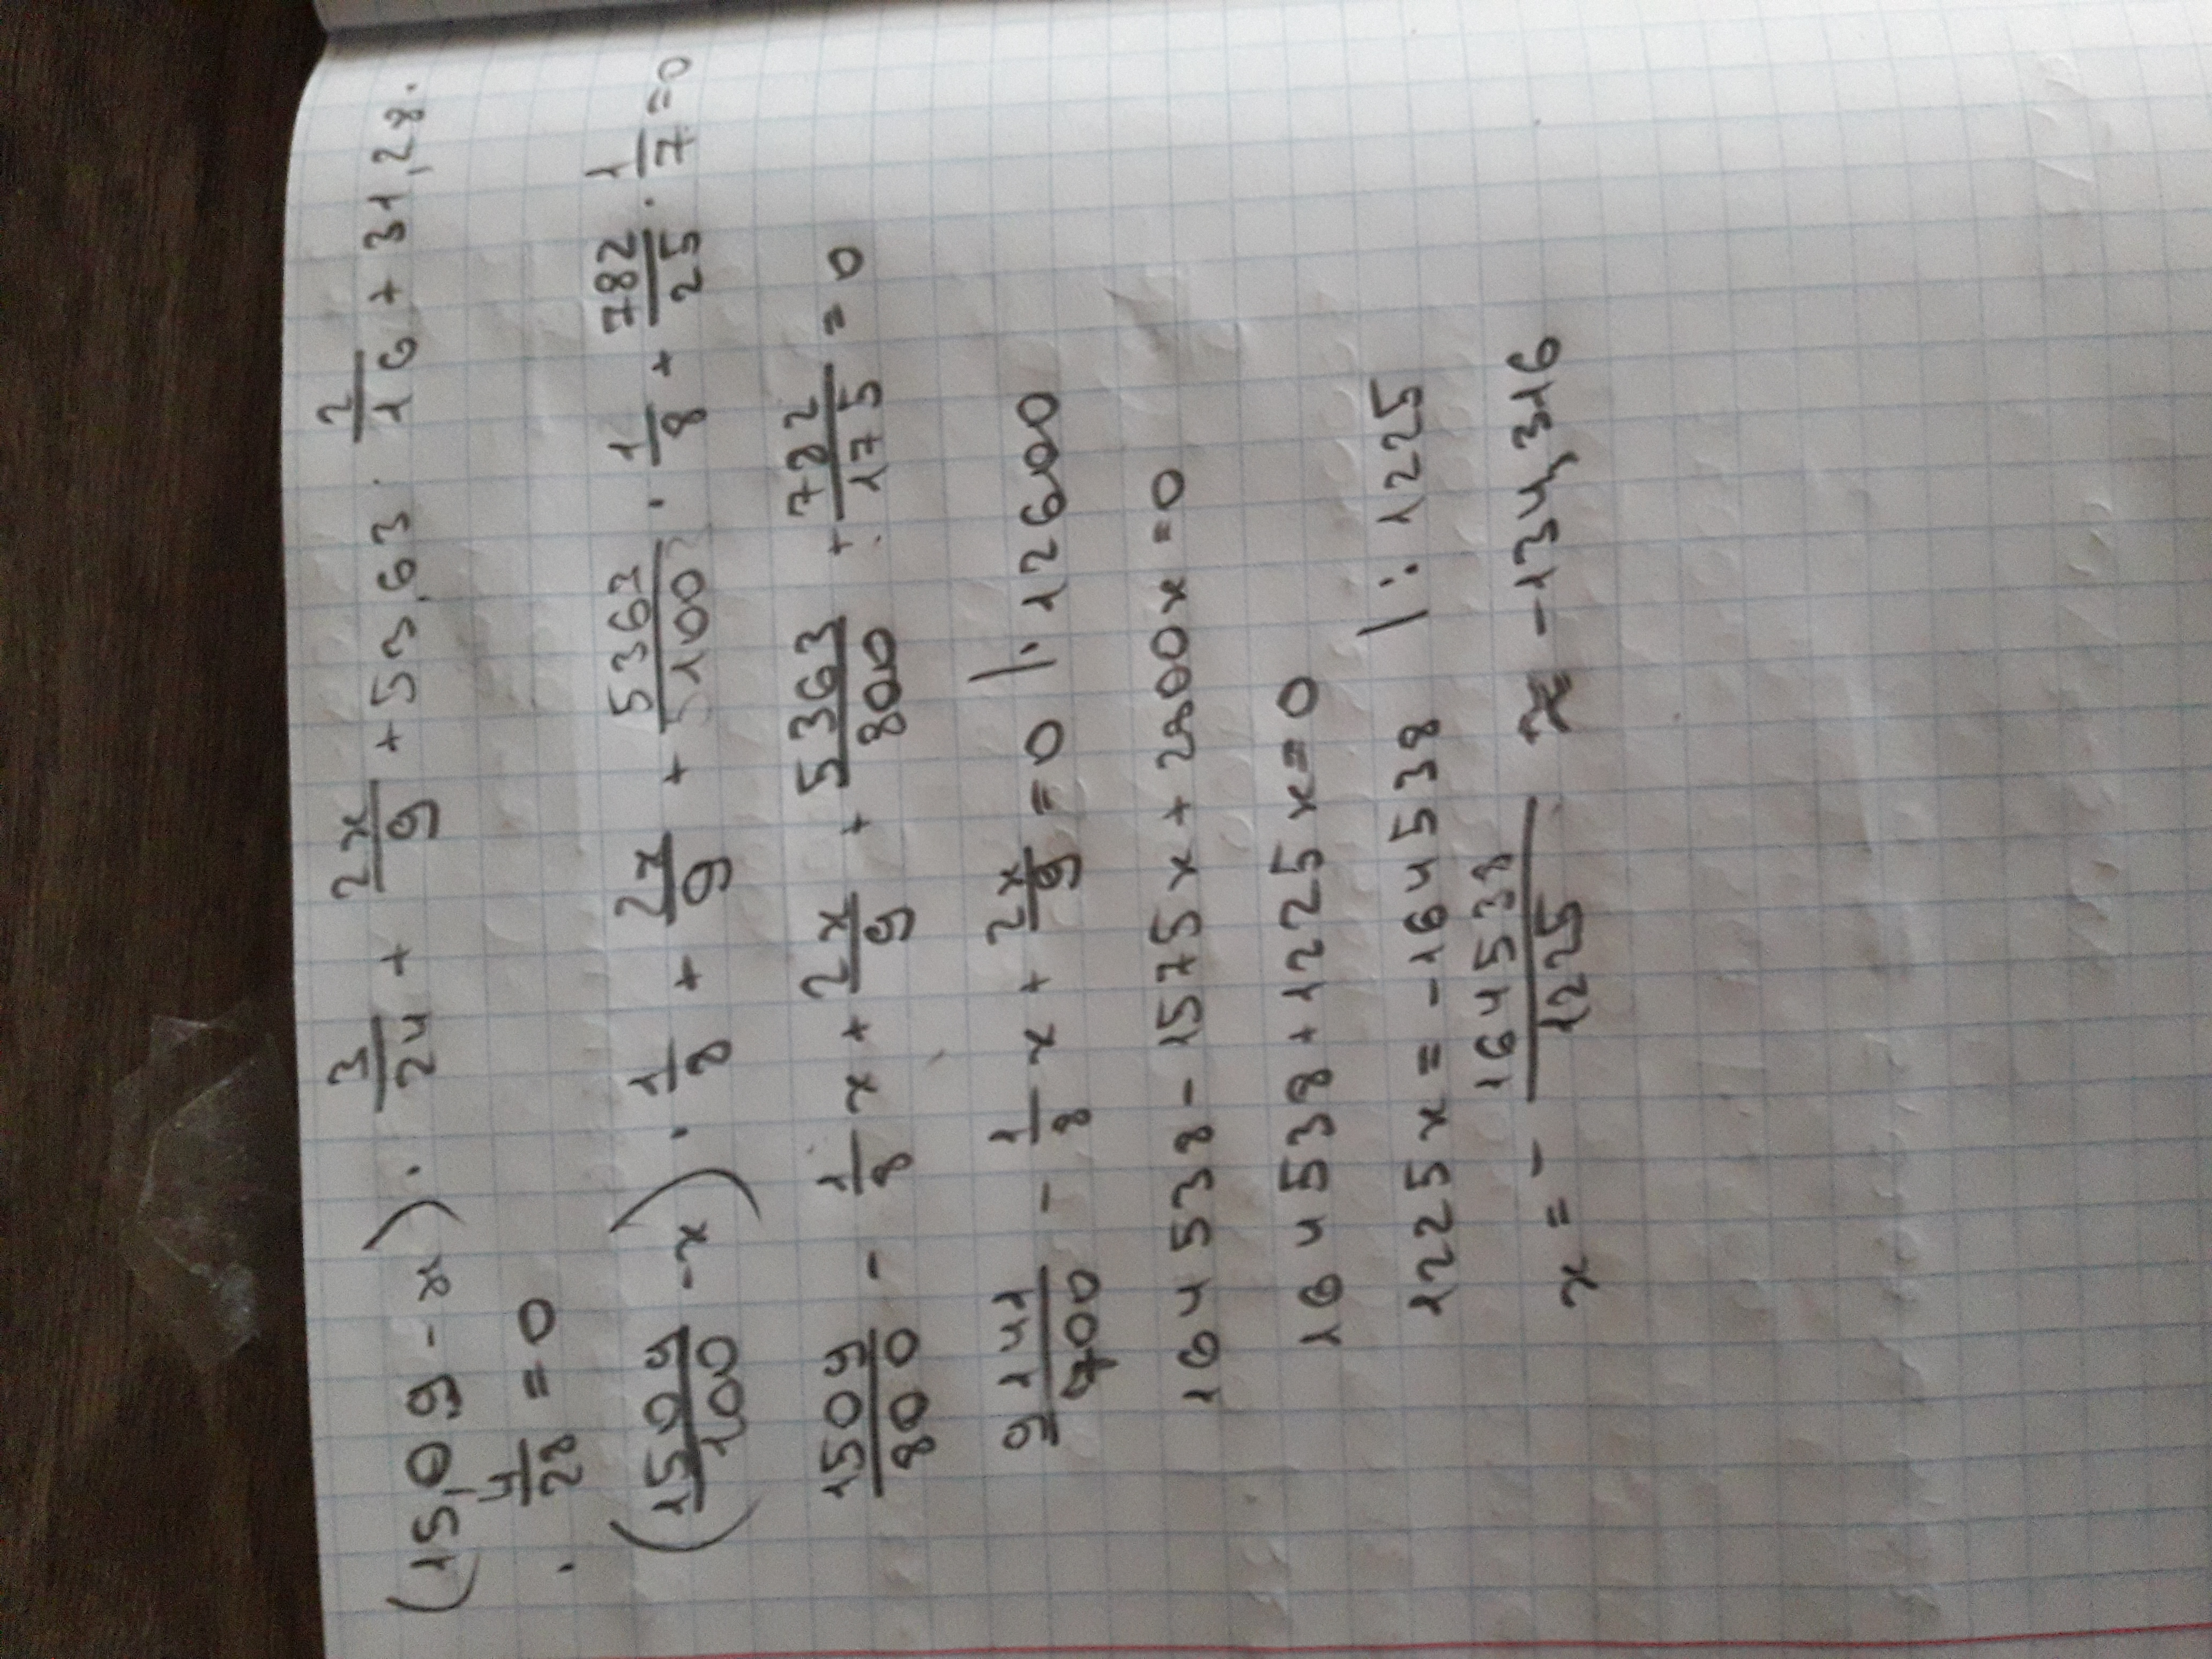 (15,09-x)·3/24+2x/9+53,63·2/16+31,28·
·4/28=0
(1509/100-x)·1/8+2x/9+5363/100·1/8+782/25·1/7=0
1509/800-1/8x+2x/9+5363/800+782/175=0
9141/700-1/8x+2x/9=0 |·12600
164538-1575x+2800x=0
164538+1225x=0
1225x=-164538 |:1225
x=-164538/1225≈-134,316